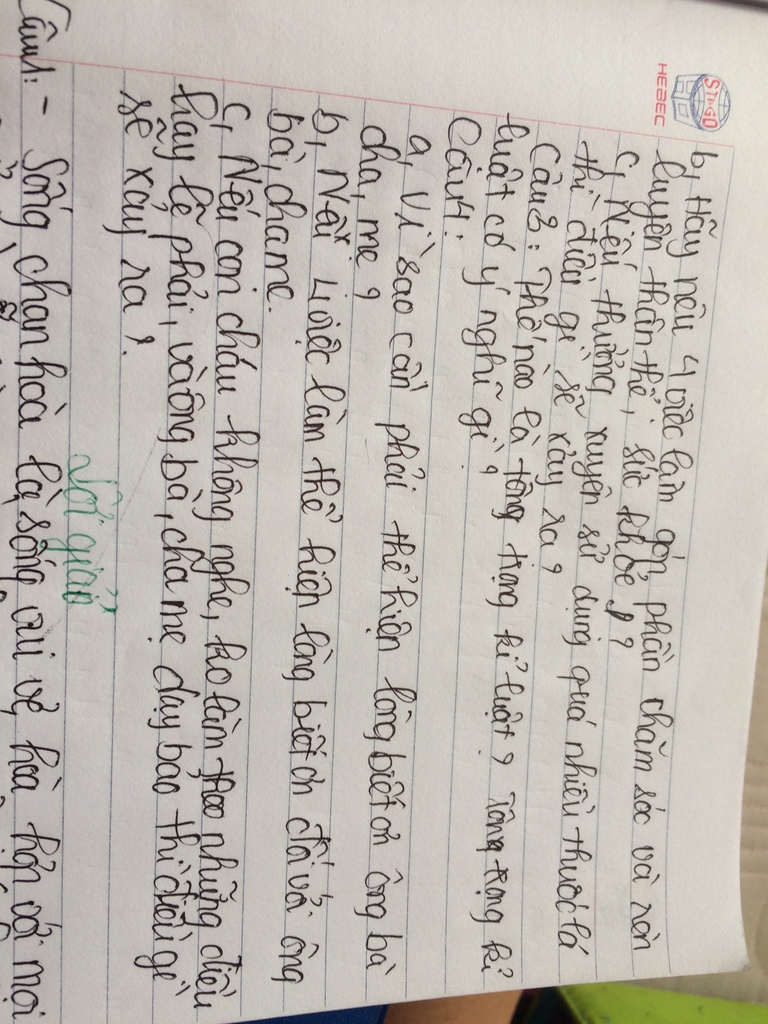 STAGO
HEBEC
b, Hãy nêu 4 việc làm góp phần chăm sóc và rèn
luyện thân thể, sức khỏe?
c, Nếu thường xuyên sử dụng quá nhiều thuốc lá
thì điều gì sẽ xảy ra?
Câu 3: Thế nào là tông trọng kỉ luật? Tông trọng kỉ
luật có ý nghĩ gì?
Câu 4:
a, Vì sao cần phải thể hiện lòng biết ơn ông bà
cha, mẹ?
b, Nêu 4 việc làm thể hiện lòng biết ơn đối với ông
bà, cha mẹ.
c, Nếu con cháu không nghe, ko làm theo những điều
hay lẽ phải, và ông bà, cha mẹ dạy bảo thì điều gì
sẽ xảy ra?
Lời giải
Câu 1: - Sống chan hoà là sống vui vẻ, hoà hợp với mọi